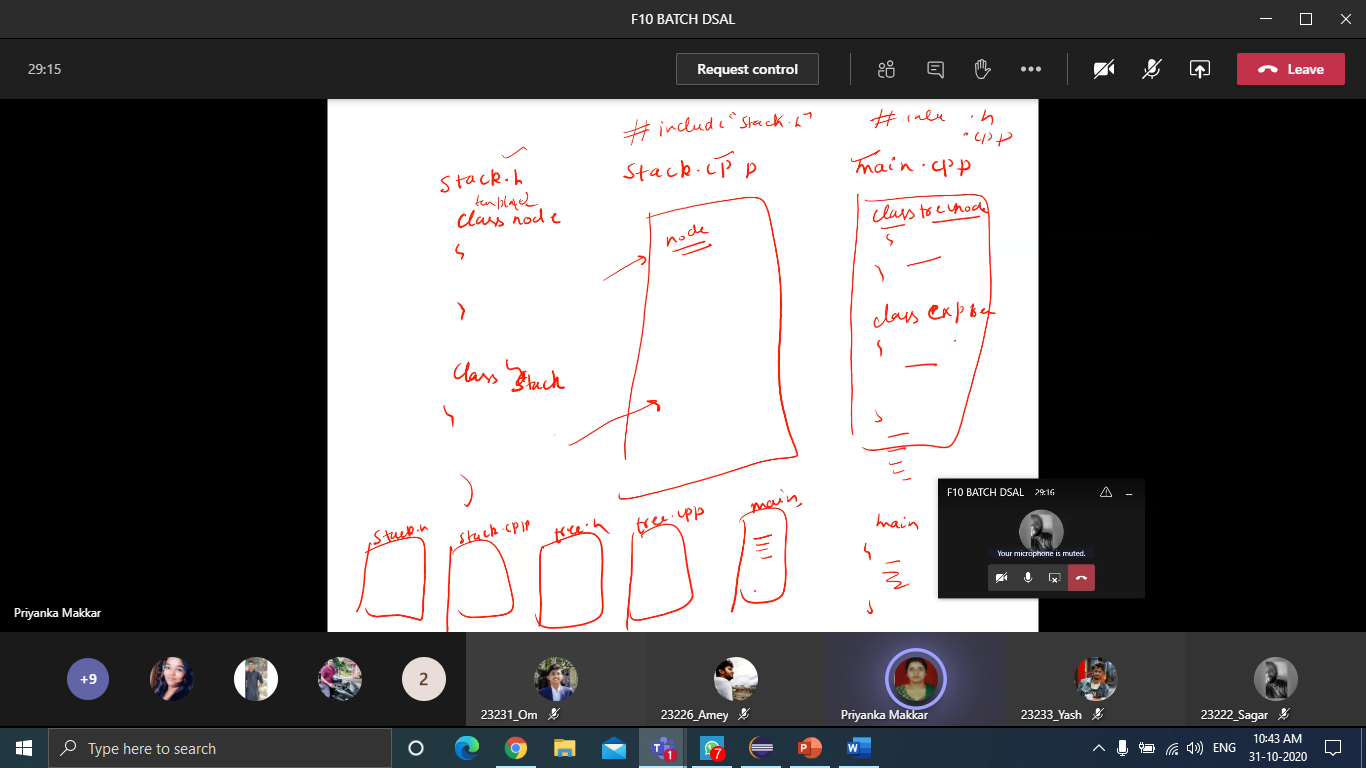 F10 BATCH DSAL
29:15
Request control
Leave
#include "Stack.h"
.h
.cpp
Stack.h
Stack.cpp
main.cpp
class node
{
}
node
class treenode
{
}
class
{
class Stack
{
}
Stack.h
stack.cpp
tree.h
tree.cpp
main
main
{
F10 BATCH DSAL
29:16
Your microphone is muted.
Priyanka Makkar
+9
2
23231_Om
23226_Amey
Priyanka Makkar
23233_Yash
23222_Sagar
Type here to search
1
7
ENG
10:43 AM
31-10-2020